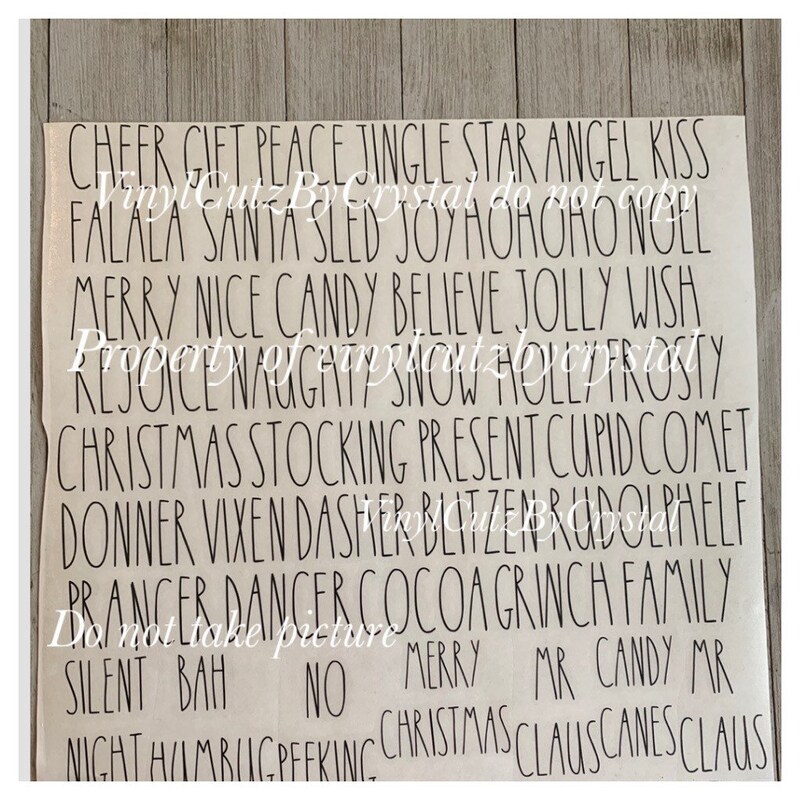 CHEER GIFT PEACE JINGLE STAR ANGEL KISS
VinylCutzByCrystal do not copy
FALALA SANTA SLED JOY HOHOHO NOEL
MERRY NICE CANDY BELIEVE JOLLY WISH
Property of vinylcutzbycrystal
REJOICE NAUGHTY SNOW HOLLY FROSTY
CHRISTMAS STOCKING PRESENT CUPID COMET
DONNER VIXEN DASHER BLITZEN RUDOLPH ELF
VinylCutzByCrystal
PRANCER DANCER COCOA GRINCH FAMILY
Do not take picture
SILENT BAH NO MERRY MR CANDY MR
NIGHT HUMBUG PEEKING CHRISTMAS CLAUS CANES CLAUS